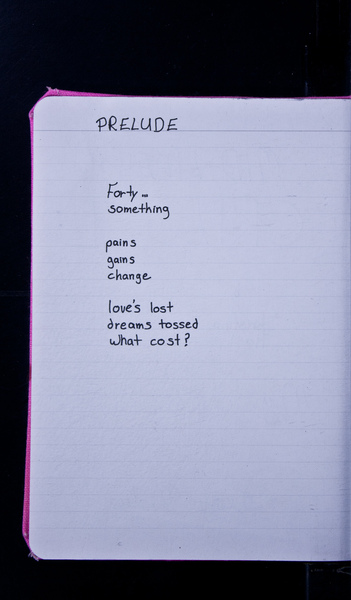 PRELUDE
Forty -
something
pains
gains
change
love's lost
dreams tossed
what cost?